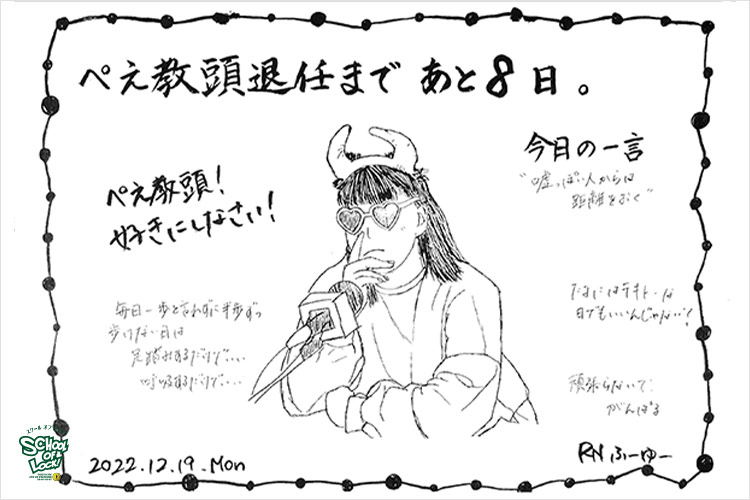 ぺえ教頭退任まで あと8日。
今日の一言
"嘘っぽい人からは
距離をおく"
ぺえ教頭！
好きにしなさい！
毎日一歩と言わずに半歩ずつ
歩けない日は
足踏みするだけで...
呼吸するだけで...
たまにはテキトーな
日でもいいんじゃない！
頑張らないで
がんばる
SCHOOL
OF
LOCK!
2022.12.19.Mon
RN ふーゆー